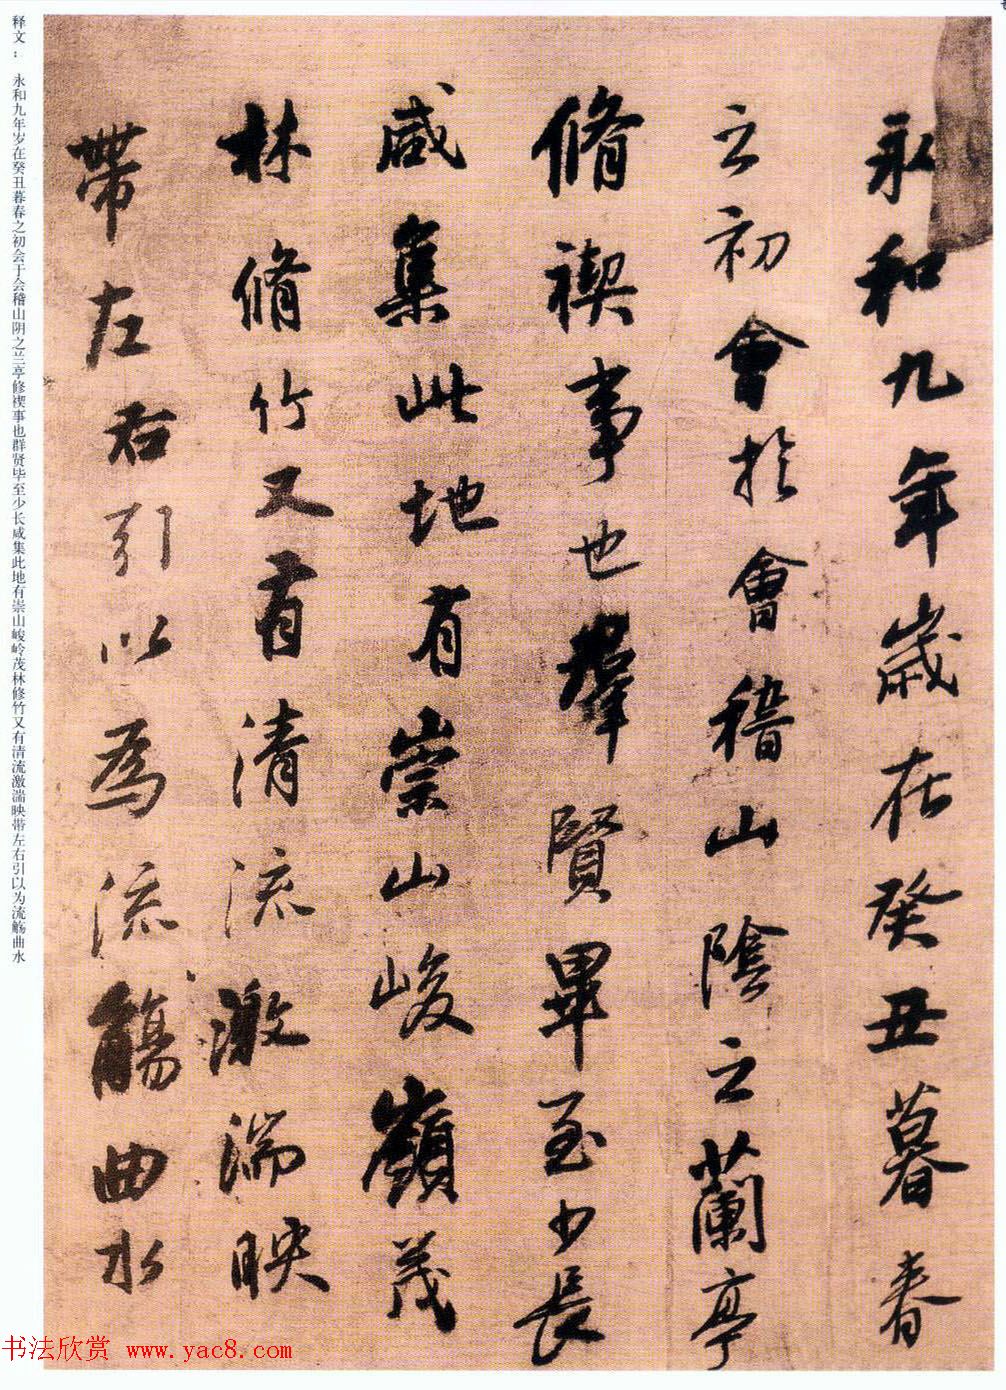 永和九年歲在癸丑暮春
之初會於會稽山陰之蘭亭
脩禊事也羣賢畢至少長
咸集此地有崇山峻嶺茂
林脩竹又有清流激湍映
帶左右引以為流觴曲水
释文：永和九年岁在癸丑暮春之初会于会稽山阴之兰亭修禊事也群贤毕至少长咸集此地有崇山峻岭茂林修竹又有清流激湍映带左右引以为流觞曲水
书法欣赏 www.yac8.com